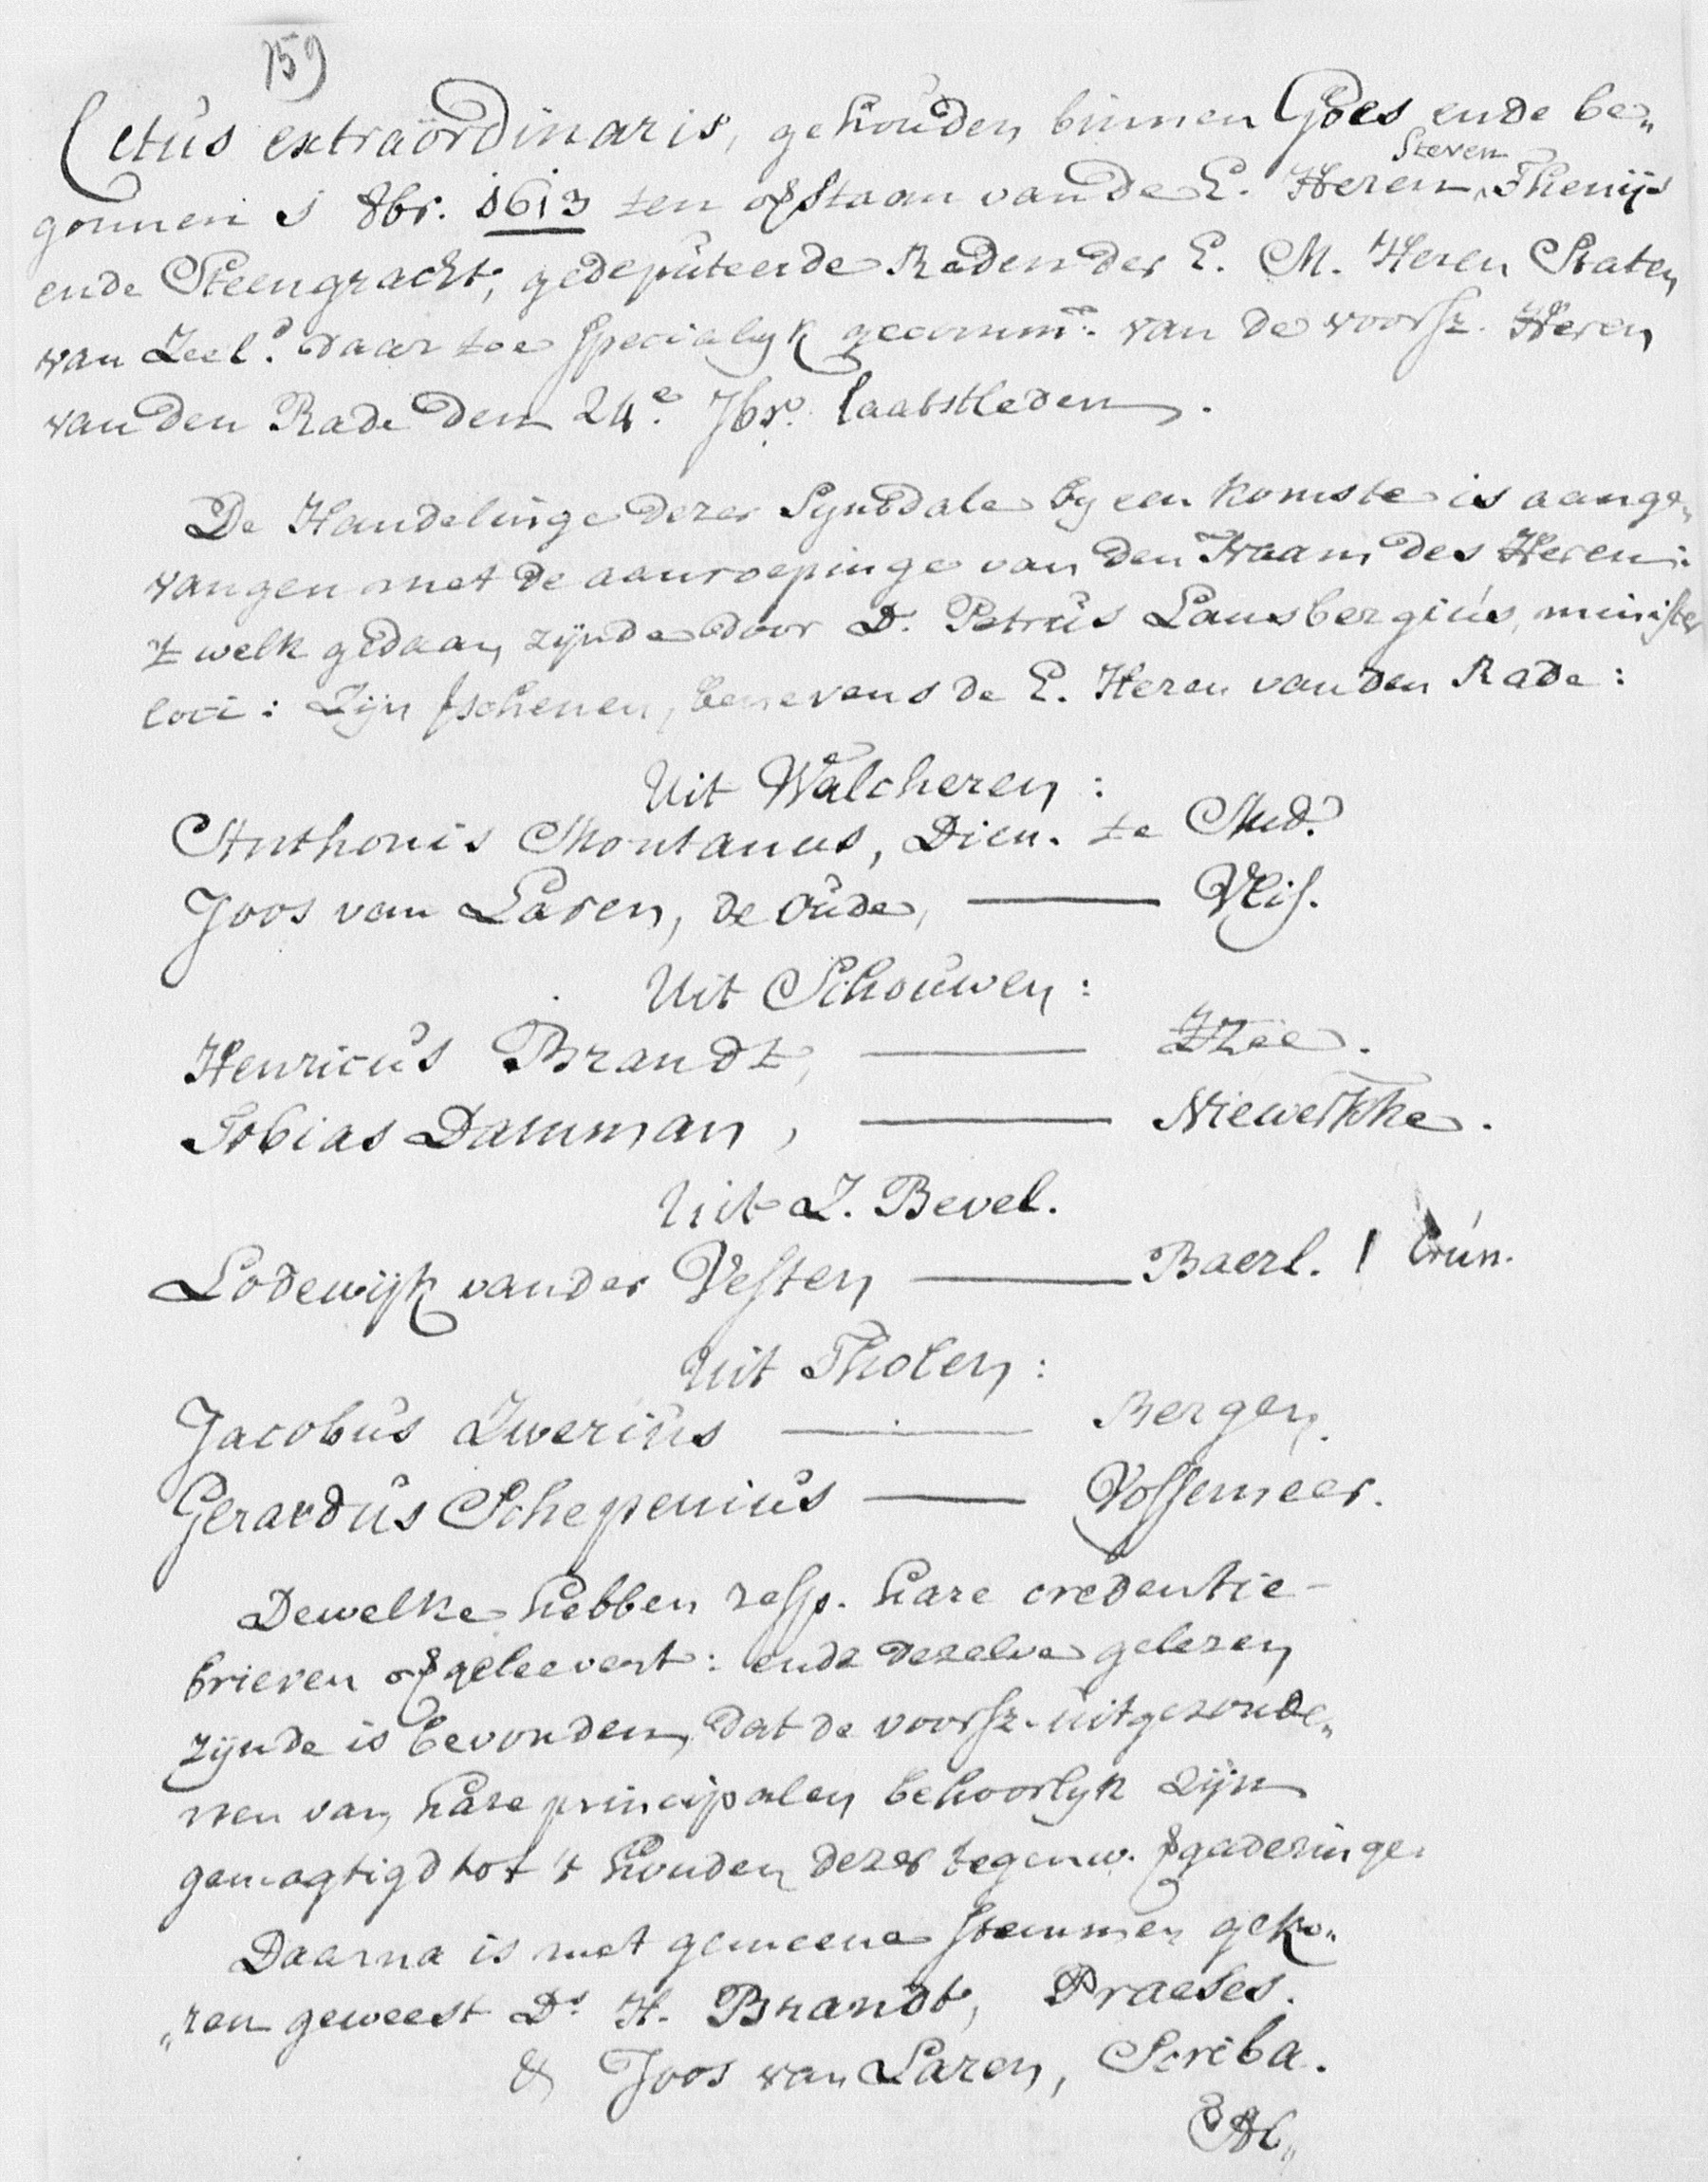 159
Cetus extraördinaris, gehouden binnen Goes ende be„
Steven
gonnen 1 8br. 1613 ten opstaan van de E. Heren Thenijs
ende Steengracht, gedeputeerde Raden der E. M. Heren Staten
van Zeel.d daar toe specialyk gecomm.de van de voorsz. Heren
van den Rade den 24.e 7br. laatstleden.
De Handelinge dezer Synodale by een komste is aange„
vangen met de aanroepinge van den Naam des Heren:
't welk gedaan zijnde door D. Petrus Lansbergius, minister
loci: Zijn schenen, benevens de E. Heren van den Rade:
Uit Walcheren:
Anthonis Montanus, Dien. te Mid.
Joos van Laren, de Oude, — Vlis.
Uit Schouwen:
Henricus Brandt, — Zzee.
Tobias Damman, — Niewerkke.
Uit Z. Bevel.
Lodewijk vander Vesten — Baerl. / Crun.
Uit Tholen:
Jacobus Zwerius — Bergen.
Gerardus Schepenius — Vossemeer.
Dewelke hebben resp. hare credentie-
brieven opgeleevert: ende dezelve gelezen
zijnde is bevonden, dat de voorsz. uitgezonde„
nen van hare principalen behoorlyk zijn
gemagtigd tot 't houden dezer tegenw. gaderinge.
Daarna is met gemeene stemmen geko„
„ren geweest Ds H. Brandt, Praeses.
& Joos van Laren, Scriba.